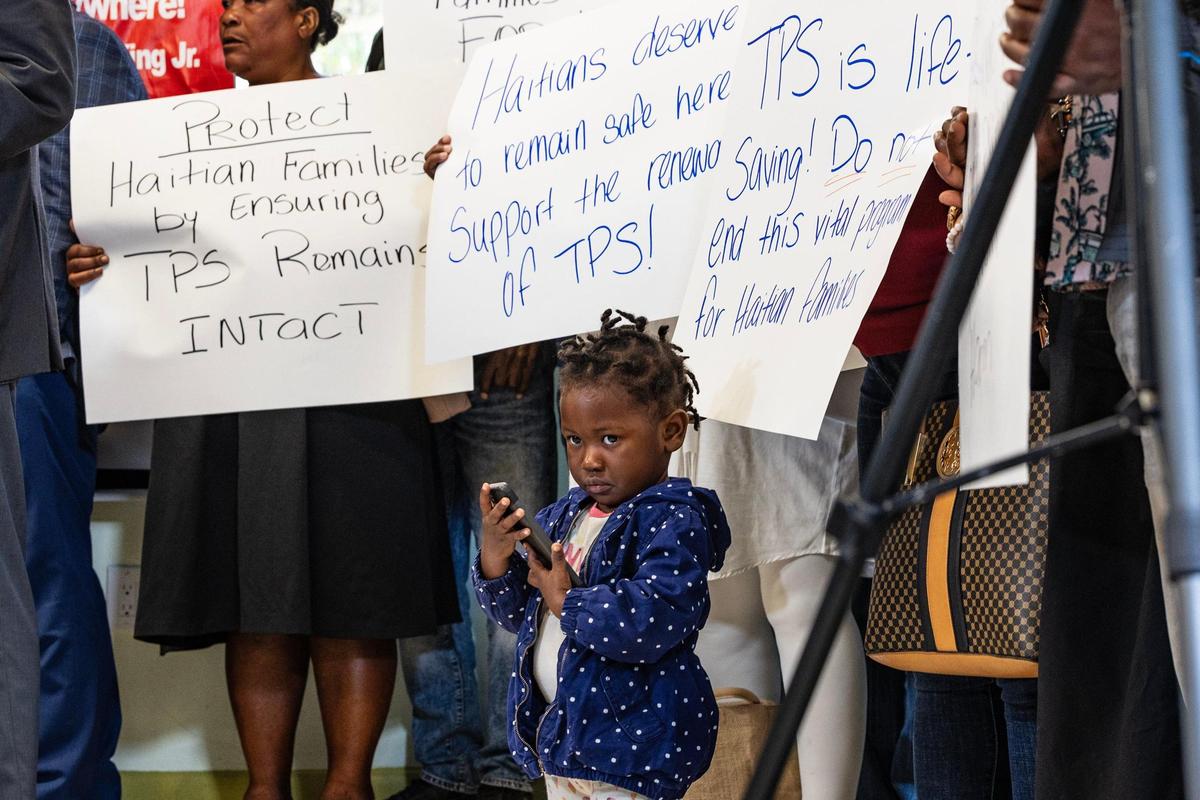 where!
ing Jr.
Protect
Haitian Families
by Ensuring
TPS Remains
INTacT
For
Haitians deserve
to remain safe here
Support the renewa
of TPS!
TPS is life-
Saving! Do not
end this vital program
for Haitian families